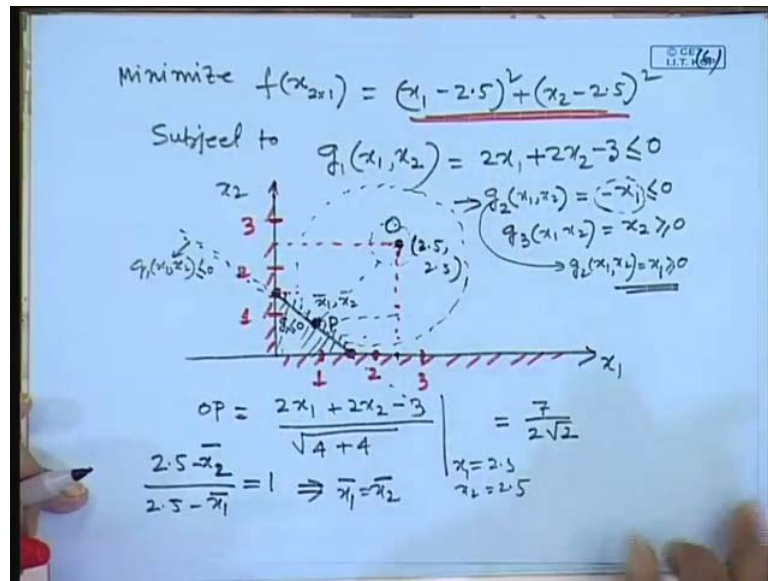 © CET
I.I.T. KGP
(6)
Minimize f(x₂ₓ₁) = (x₁ - 2.5)² + (x₂ - 2.5)²
Subject to g₁(x₁, x₂) = 2x₁ + 2x₂ - 3 ≤ 0
→ g₂(x₁, x₂) = -x₁ ≤ 0
g₃(x₁ x₂) = x₂ ≥, 0
→ g₂(x₁, x₂) = x₁ ≥ 0
x₂
3
2
1
O
(2.5, 2.5)
g₁(x₁, x₂) ≤ 0
x̄₁, x̄₂
P
g₁≤0
1 2 3
x₁
OP = (2x₁ + 2x₂ - 3) / √(4 + 4) | x₁ = 2.5 x₂ = 2.5 = 7 / 2√2
(2.5 - x̄₂) / (2.5 - x̄₁) = 1 ⇒ x̄₁ = x̄₂